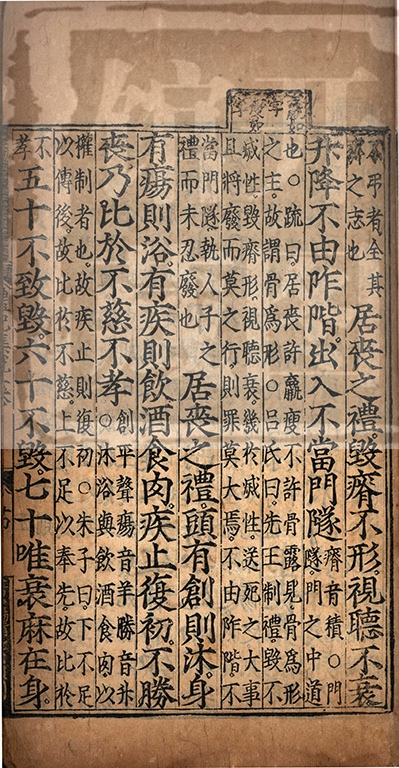 不弔者全其
之志也
居喪之禮毀瘠不形視聽不衰
升降不由阼階出入不當門隧
瘠音積○門
隧門之中道
也○疏曰居喪許羸瘦不許骨露見骨為形
之主故謂骨為形○呂氏曰先王制禮毀不
滅性毀瘠形視聽衰幾於滅性送死之大事
且將廢而莫之行則罪莫大焉不由阼階不
當門隧執人子之
禮而未忍廢也
居喪之禮頭有創則沐身
有瘍則浴有疾則飲酒食肉疾止復初不勝
喪乃比於不慈不孝
創平聲瘍音羊勝音升
○沐浴與飲酒食肉以
權制者也故疾止則復初○朱子曰下不足
以傳後故比於不慈上不足以奉先故比於
不
孝
五十不致毀六十不毀七十唯衰麻在身